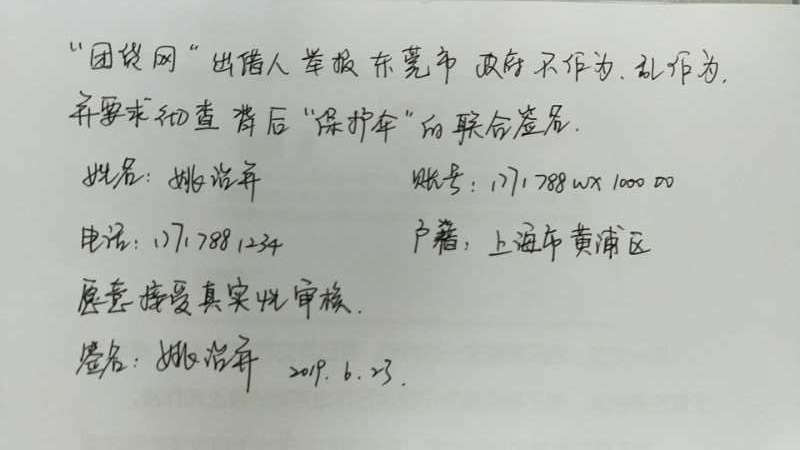 “团贷网”出借人举报东莞市政府不作为、乱作为，
并要求彻查背后“保护伞”的联合签名.
姓名：姚治弃 账号：1771788wx100000
电话：17717881234 户籍：上海市黄浦区
愿意接受真实性审核.
签名：姚治弃 2019.6.23.